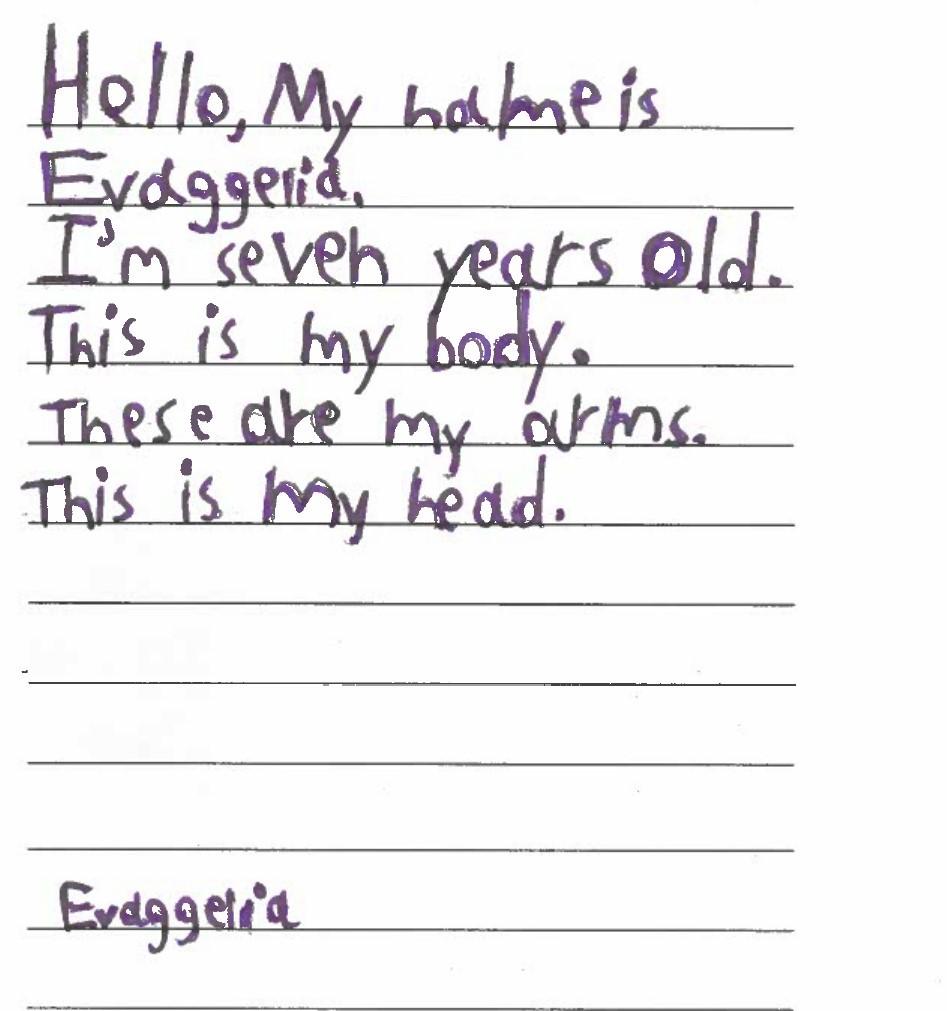 Hello, My name is
Evaggelia.
I'm seven years old.
This is my body.
These are my arms.
This is my head.
Evaggelia